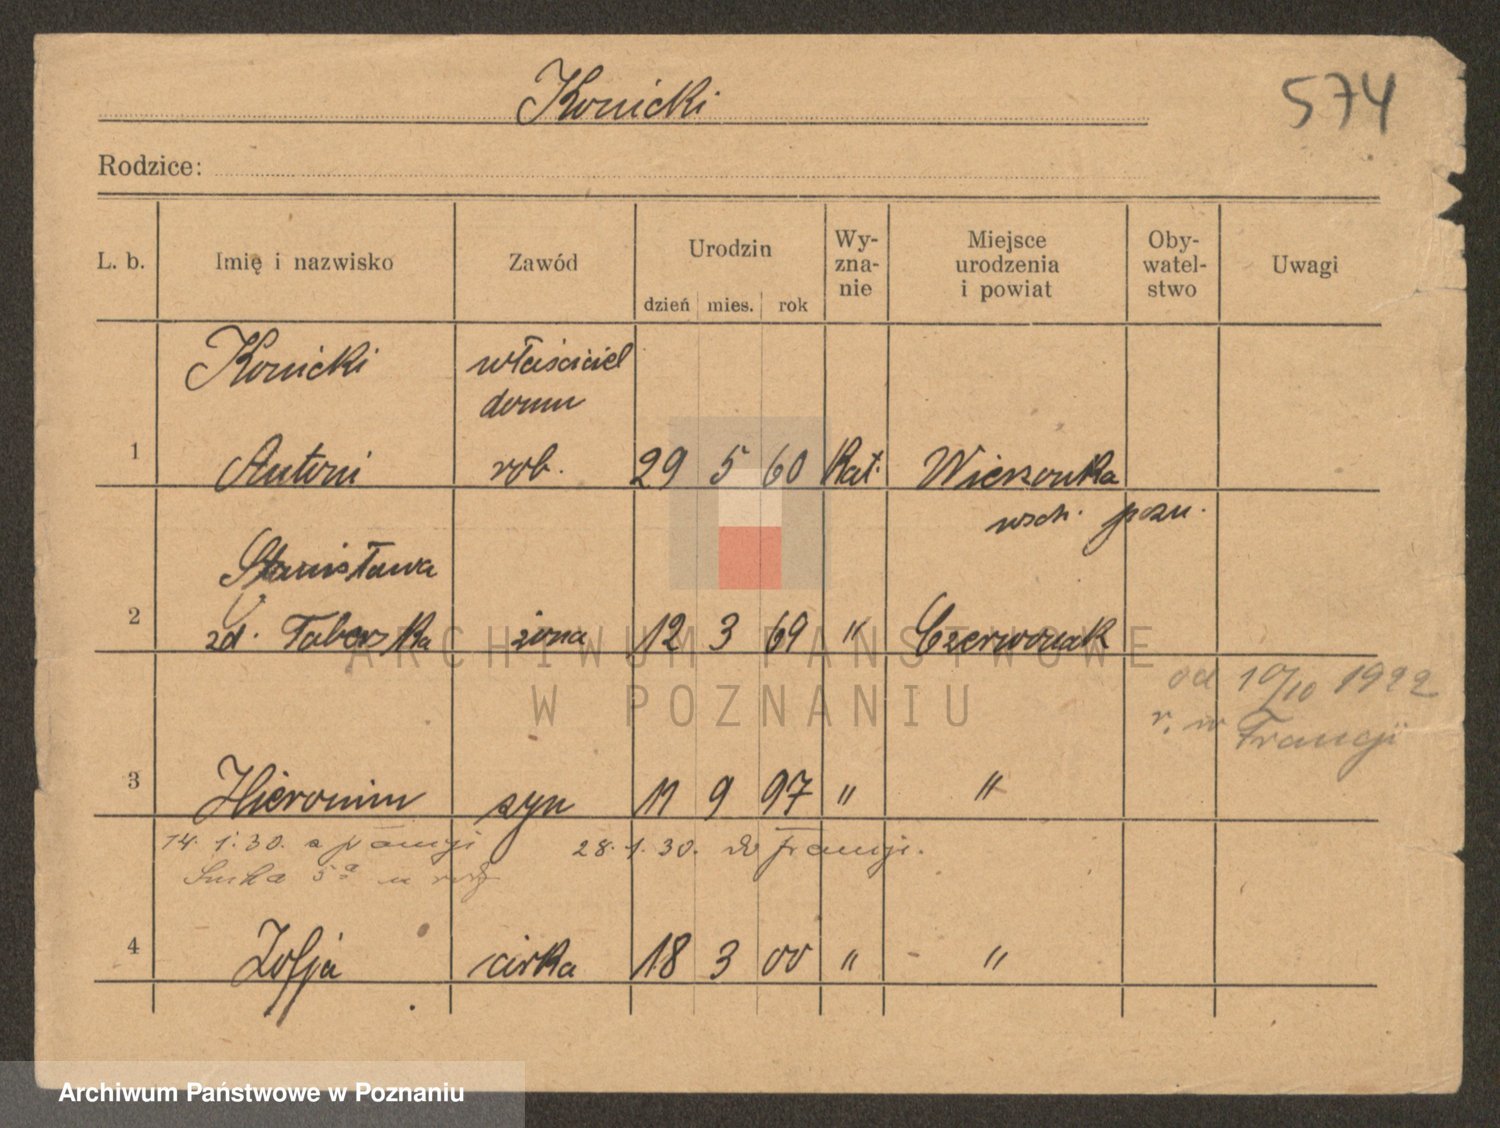 Konicki
574
Rodzice:
L. b. Imię i nazwisko Zawód Urodzin dzień mies. rok Wy-zna-nie Miejsce urodzenia i powiat Oby-watel-stwo Uwagi
Konicki właściciel
domu
1 Antoni rob. 29 5 60 Kat. Wierzonka
wsch. pozn.
Stanisława
2 zd. Taberska żona 12 3 69 " Czerwonak
od 10/10 1922
r. w Francji
3 Hieronim syn 11 9 97 " "
14.1.30. z Francji 28.1.30. do Francji.
5a u
4 Zofja córka 18 3 00 " "
ARCHIWUM PAŃSTWOWE
W POZNANIU
Archiwum Państwowe w Poznaniu